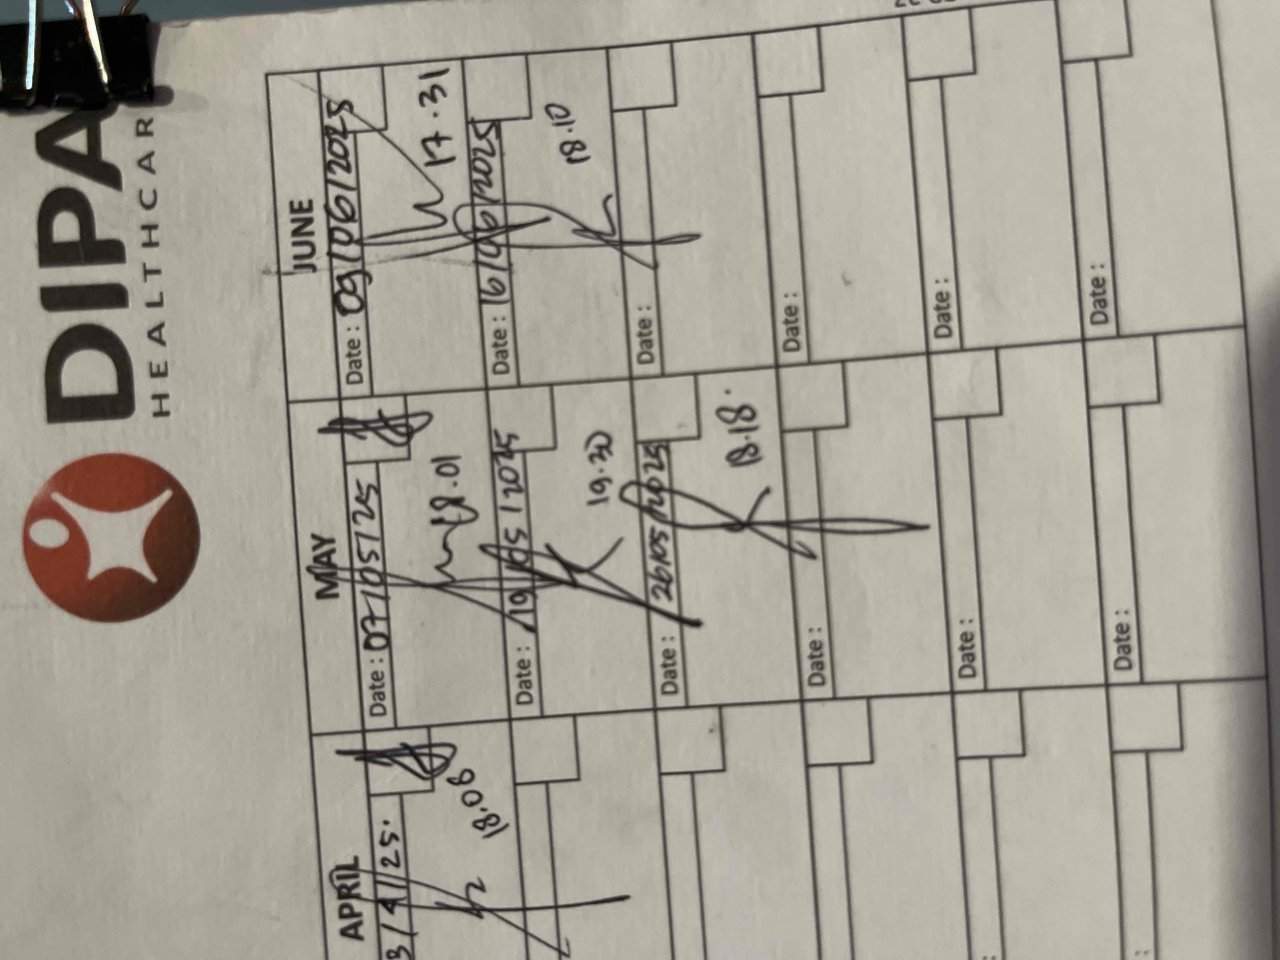 DIPA
HEALTHCAR
APRIL
MAY
JUNE
/4/25.
18.08
Date : 07/05/25
18.01
Date : 09/06/2025
17.31
Date : 19/05/2025
19.30
Date : 16/06/2025
18.10
Date : 26/05/2025
18.18.
Date :
Date :
Date :
Date :
Date :
Date :
Date :